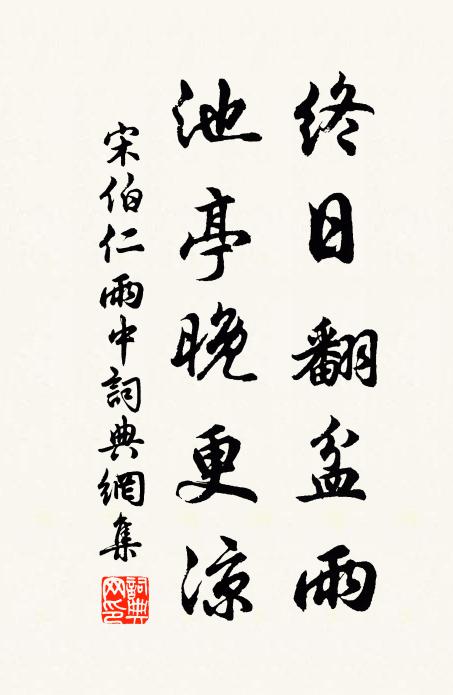 終日翻盆雨
池亭晚更涼
宋伯仁雨中詞典網集
詞典網印